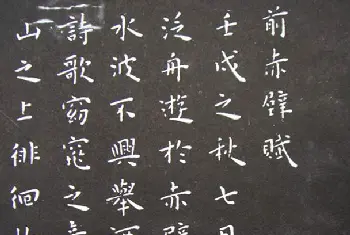 前赤壁賦
壬戌之秋七月
泛舟遊於赤壁
水波不興舉酒
詩歌窈窕之章
山之上徘徊